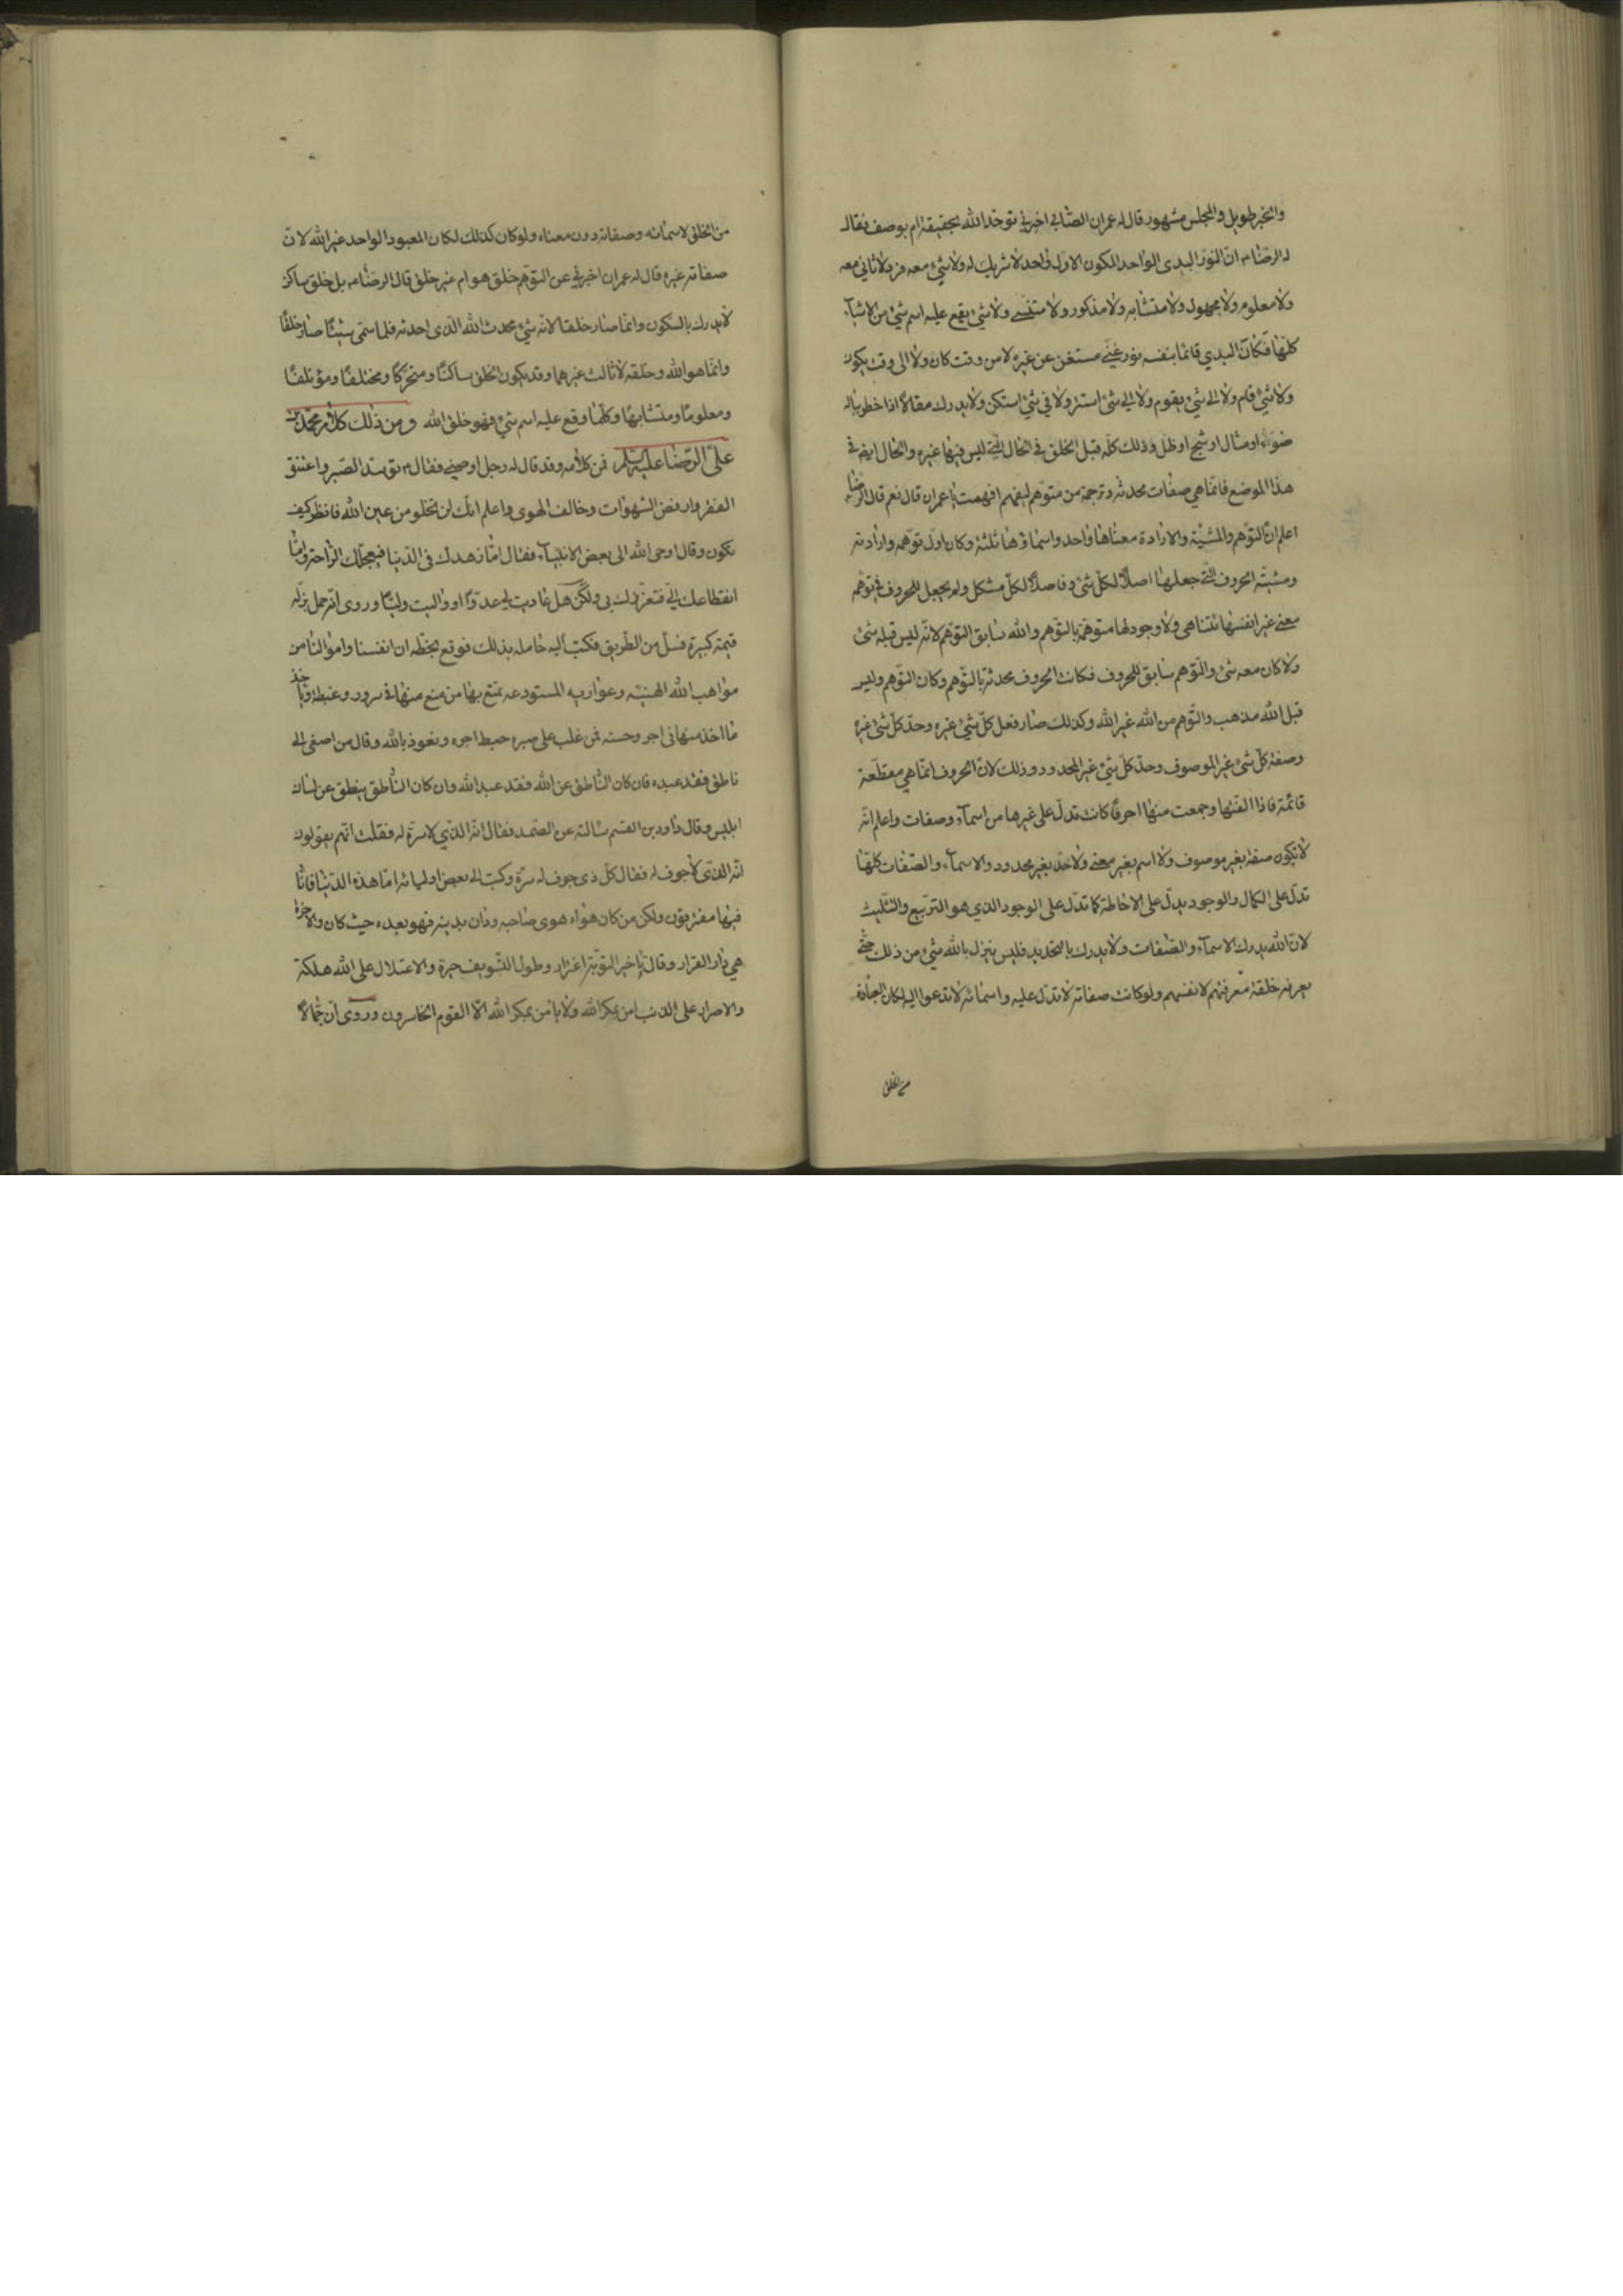 والخبر طويل والمجلس مشهور قال له عمران الصّابي اخبرني توحّد الله بحقيقة ام بوصف فقال
له الرضا ع انّ النور البدى الواحد الكون الاول واحد لا شريك له ولا شيء معه فرد لا ثاني معه
ولا معلوم ولا مجهول ولا متشابه ولا مذكور ولا منسي ولا شي يقع عليه اسم شئ من الاشيآء
كلها فكان البدي قائما بنفسه نور غني مستغن عن غيره لا من وقت كان ولا الى وقت يكون
ولا شئ قام ولا الى شئ يقوم ولا الى شئ استتر ولا في شئ استكن ولا يدرك مقالا اذا خطر باله
ضوء او مثال او شبح او ظل وذلك كله قبل الخلق في الحال التي ليس فيها غيره والحال ايضه في
هذا الموضع فانما هي صفات محدثة وترجمة من متوهم ليفهم افهمت يا عمران قال نعم قال الرضا ع
اعلم انّ التوهم والمشيّة والارادة معناها واحد واسماؤها ثلثة وكان اول توهمه وارادته
ومشيّته الحروف التي جعلها اصلا لكلّ شئ وفاصلا لكلّ مشكل ولم يجعل للحروف في توهمه
معنى غير انفسها تتناهى ولا وجود لها متوهمة بالتوهم والله سابق التوهم لانه ليس قبله شئ
ولا كان معه شئ والتوهم سابق للحروف فكانت الحروف محدثة بالتوهم وكان التوهم وليس
قبل الله مذهب والتوهم من الله غير الله وكذلك صار فعل كلّ شئ غيره وحدّ كلّ شئ غيره
وصفة كلّ شئ غير الموصوف وحدّ كلّ شئ غير المحدود وذلك لانّ الحروف انما هي مقطعة
قائمة فاذا الفتها وجمعت منها احرفا كانت تدلّ على غيرها من اسمآء وصفات واعلم انه
لا يكون صفة بغير موصوف ولا اسم بغير معنى ولا حدّ بغير محدود والاسمآء والصفات كلها
تدلّ على الكمال والوجود يدلّ على الاحاطة كما تدلّ على الوجود الذي هو التربيع والتثليث
لانّ الله يدرك الاسمآء والصفات ولا يدرك بالتحديد فليس ينزل بالله شئ من ذلك حتى
يعرفه خلقه معرفتهم لانفسهم ولو كانت صفاته لا تدل عليه واسمائه لا تدعوا اليه لكان العبادة
من الخلق
من الخلق لاسمائه وصفاته دون معناه ولو كان كذلك لكان المعبود الواحد غير الله لانّ
صفاته غيره قال له عمران اخبرني عن التوهم خلق هو ام غير خلق قال الرضا ع بل خلق ساكن
لا يدرك بالسكون وانما صار خلقا لانه شئ محدث الله الذي احدثه فلما سمّى شيئا صار خلقا
وانما هو الله وخلقه لا ثالث غيرهما وقد يكون الخلق ساكنا ومتحركا ومختلفا ومؤتلفا
ومعلوما ومتشابها وكلّما وقع عليه اسم شئ فهو خلق الله ومن ذلك كلام محمّد بن
عليّ الرّضا عليه السّلم فمن كلامه وقد قال له رجل اوصني فقال ع توسد الصبر واعتنق
الفقر وارفض الشهوات وخالف الهوى واعلم انك لن تخلو من عين الله فانظر كيف
تكون وقال اوحى الله الى بعض الانبيآء فقال امّا زهدك في الدّنيا فيعجّلك الراحة وامّا
انقطاعك الي فتعززك بي ولكن هل عاديت لي عدوّا او واليت وليّا وروى انه حمل بز له
قيمة كبيرة فسلّ من الطريق فكتب اليه حامله بذلك فوقع بخطه ان انفسنا واموالنا من
مواهب الله الهنيئه وعواريه المستودعه تمتع بها من متع منها في سرور وغبطة وياخذ
ما اخذ منها في اجر وحسنه فمن غلب على صبره حبط اجره ونعوذ بالله وقال من اصغى الى
ناطق فقد عبده فان كان الناطق عن الله فقد عبد الله وان كان الناطق ينطق عن لسان
ابليس وقال داود بن القسم سالته عن الصّمد فقال انه الذي لا سرّة له فقلت انهم يقولون
انه الذي لا جوف له فقال كلّ ذي جوف له سرّة وكتب الى بعض اوليائه امّا هذه الدّنيا فانّا
فيها مفترقون ولكن من كان هواه هوى صاحبه ودان بدينه فهو بعده حيث كان والاخرة
هي دار القرار وقال تاخير التوبة اغترار وطول التسويف حيرة والاعتلال على الله هلكة
والاصرار على الذنب امن بمكر الله ولا يامن بمكر الله الّا القوم الخاسرون وروى انّ جمالا